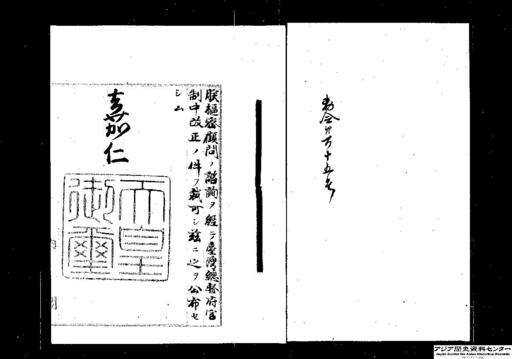 勅令第百十五号
朕樞密顧問ノ諮詢ヲ經テ臺灣總督府官
制中改正ノ件ヲ裁可シ茲ニ之ヲ公布セ
シム
嘉仁
天皇
御璽
内閣
アジア歴史資料センター
Japan Center for Asian Historical Records